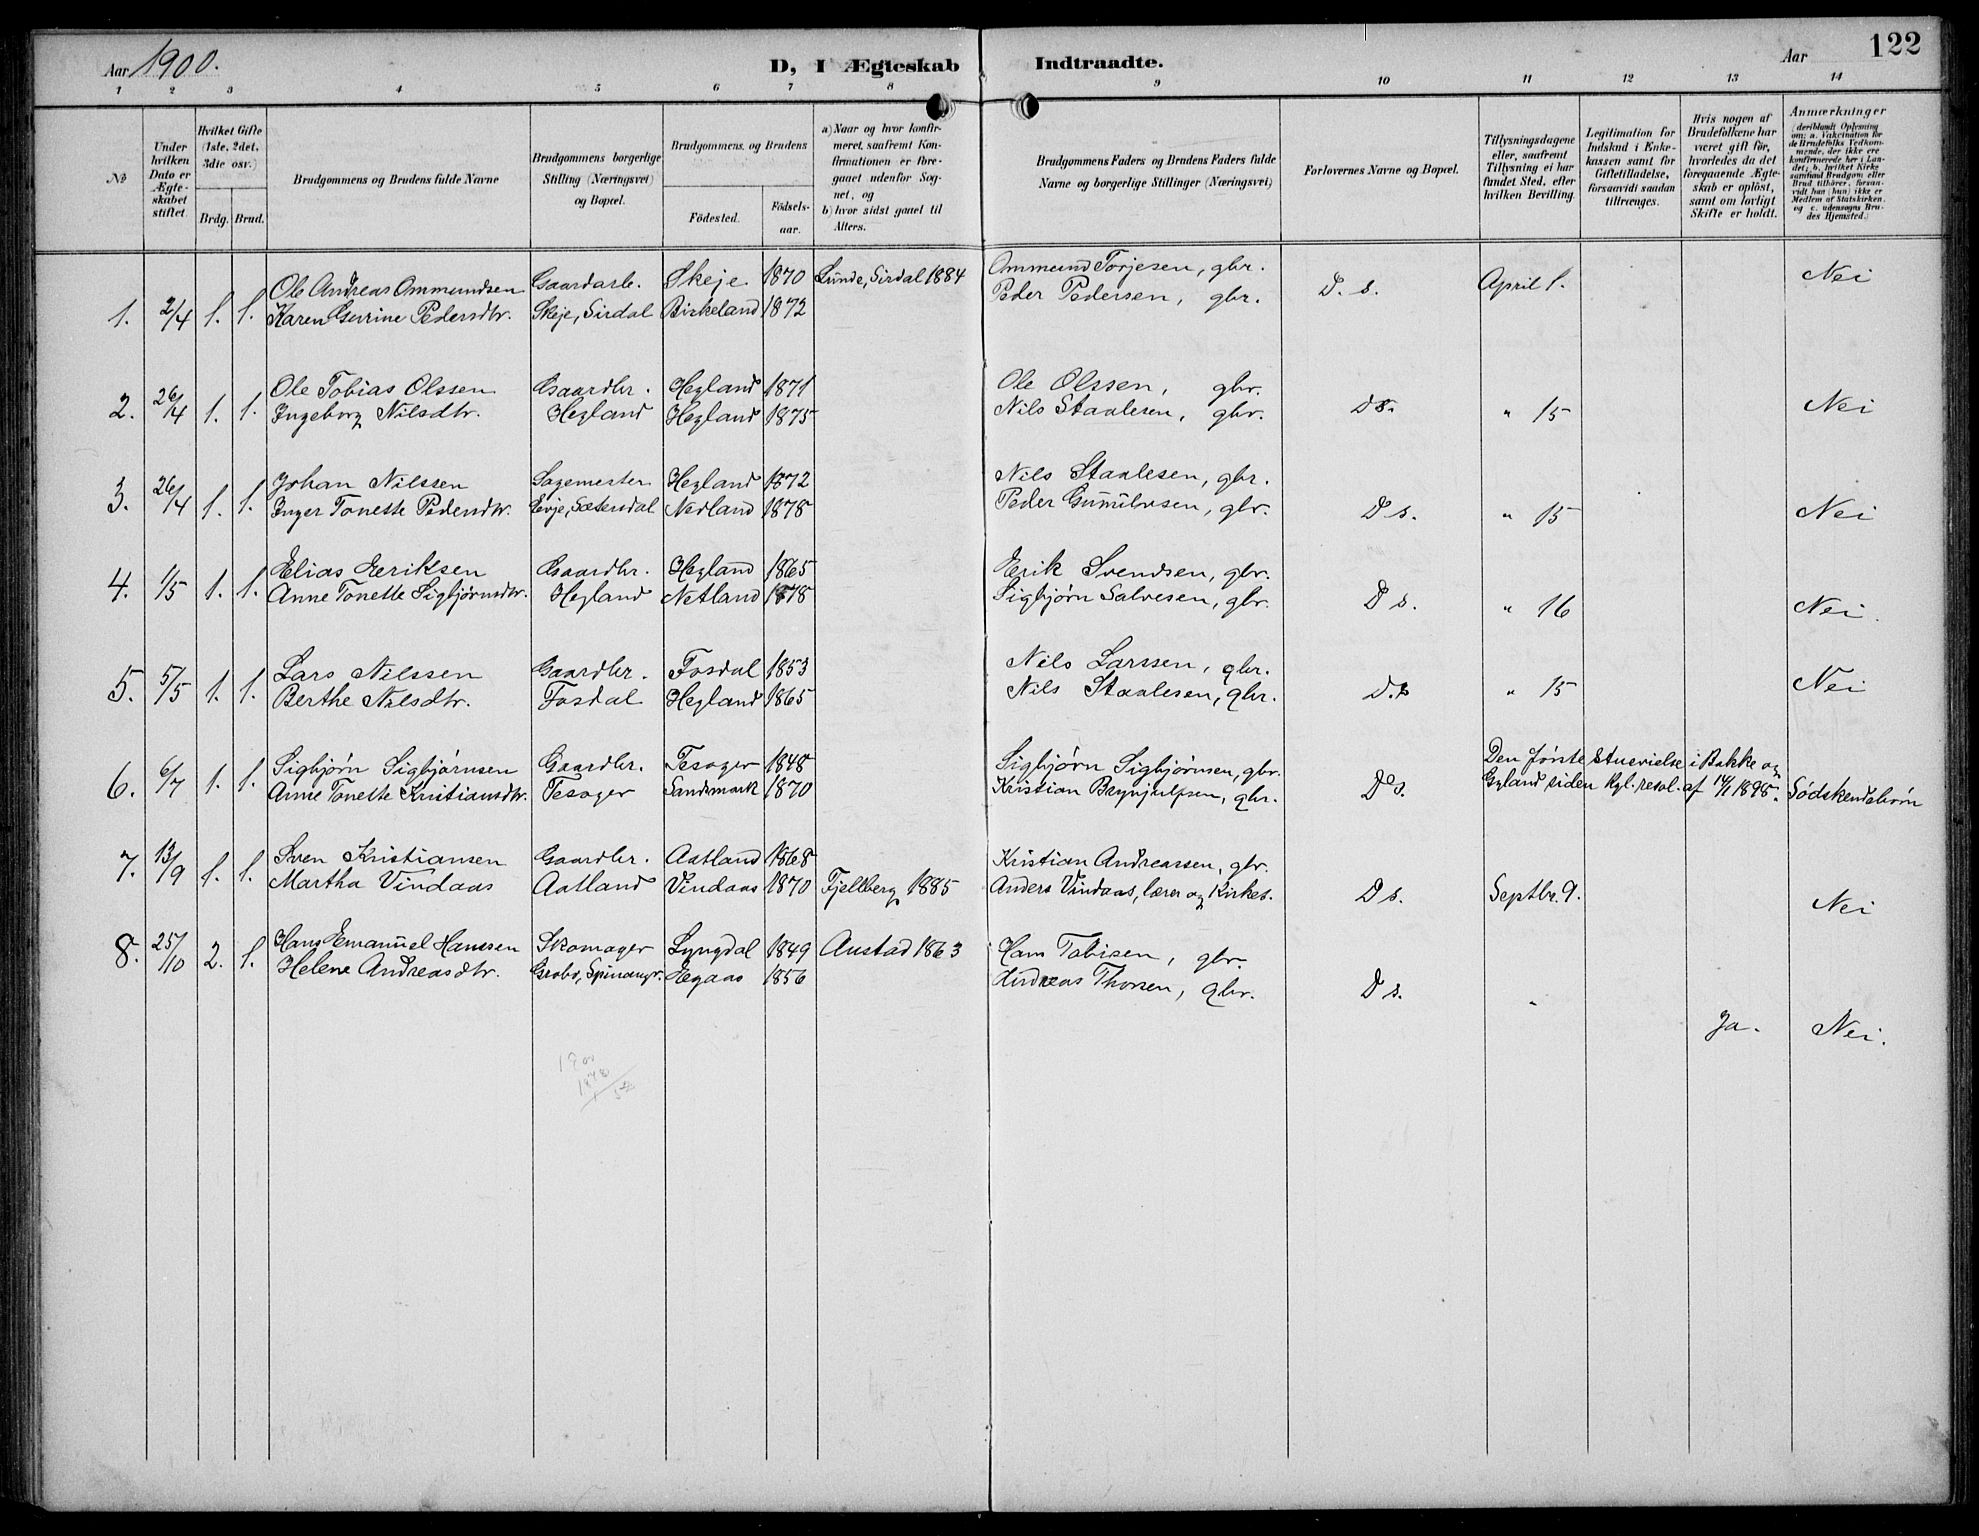 Aar 1900. D, I Ægteskab Indtraadte. Aar 122
1 2 3 4 5 6 7 8 9 10 11 12 13 14
No
Under hvilken Dato er Ægteskabet stiftet.
Hvilket Gifte (1ste, 2det, 3die osv.)
Brdg. Brud.
Brudgommens og Brudens fulde Navne
Brudgommens borgerlige Stilling (Næringsvei) og Bopæl.
Brudgommens og Brudens
Fødested. Fødselsaar.
a) Naar og hvor konfirmeret, saafremt Konfirmationen er foregaaet udenfor Sognet, og
b) hvor sidst gaaet til Alters.
Brudgommens Faders og Brudens Faders fulde Navne og borgerlige Stillinger (Næringsvei)
Forlovernes Navne og Bopæl.
Tillysningsdagene eller, saafremt Tillysning ei har fundet Sted, efter hvilken Bevilling.
Legitimation for Indskud i Enkekassen samt for Giftetilladelse, forsaavidt saadan tiltrænges.
Hvis nogen af Brudefolkene har været gift før, hvorledes da det foregaaende Ægteskab er opløst, samt om lovligt Skifte er holdt.
Anmærkninger (deriblandt Oplysning om: a. Vakcination for de Brudefolks Vedkommende, der ikke ere konfirmerede her i Landet; b. hvilket Kirkesamfund Brudgom eller Brud tilhører, forsaavidt han (hun) ikke er Medlem af Statskirken, og c. udensogns Brudes Hjemsted.)
Ole Andreas Ommundsen Gaardarb. Skeje 1870 Lunde, Sirdal 1884 Ommund Torjesen, gbr. D. s. April 1. Nei
1. 2/4 1. 1. Karen Gurine Pedersdtr. Skeje, Sirdal Birkeland 1872 Peder Pedersen, gbr.
Ole Tobias Olssen Gaardbr. Hegland 1871 Ole Olssen, gbr.
2. 26/4 1. 1. Ingeborg Nilsdtr. Hegland Hegland 1875 Nils Staalesen, gbr. D s. " 15 Nei
Johan Nilssen Sagemester Hegland 1872 Nils Staalesen, gbr.
3. 26/4 1. 1. Inger Tonette Pedersdtr. Evje, Sætersdal Nedland 1878 Peder Gunulvsen, gbr. D s. " 15 Nei
Elias Eeriksen Gaardbr. Hegland 1865 Erik Svendsen, gbr.
4. 1/5 1. 1. Anne Tonette Sigbjørnsdtr. Hegland Netland 1878 Sigbjørn Salvesen, gbr. D s. " 16 Nei.
Lars Nilssen Gaardbr. Fosdal 1853 Nils Larssen, gbr.
5. 5/5 1. 1. Berthe Nilsdtr. Fosdal Hegland 1865 Nils Staalesen, gbr. D. s " 15 Nei
Sigbjørn Sigbjørnsen Gaardbr. Tesager 1848 Sigbjørn Sigbjørnsen, gbr. Den første Stuevielse i Bakke og
6. 6/7 1. 1. Anne Tonette Kristiansdtr. Tesager Sandsmark 1870 Kristian Brynjulfsen, gbr. Ds. Gyland siden kgl. resol. af 14/1 1898. Sødskendebørn
Sven Kristiansen Gaardbr. Aatland 1868 Kristian Andreassen, gbr.
7. 13/9 1. 1. Martha Vindaas Aatland Vindaas 1870 Fjellberg 1885 Anders Vindaas, lærer og Kirkes. D s. Septbr. 9. Nei
Hans Emanuel Hanssen Skomager Lyngdal 1849 Austad 1863 Hans Tobisen, gbr.
8. 25/10 2. 1. Helene Andreasdtr. Grobs, Spinangr. Eegaas 1856 Andreas Thorsen, gbr. D s. " Ja. Nei.
1900
1848